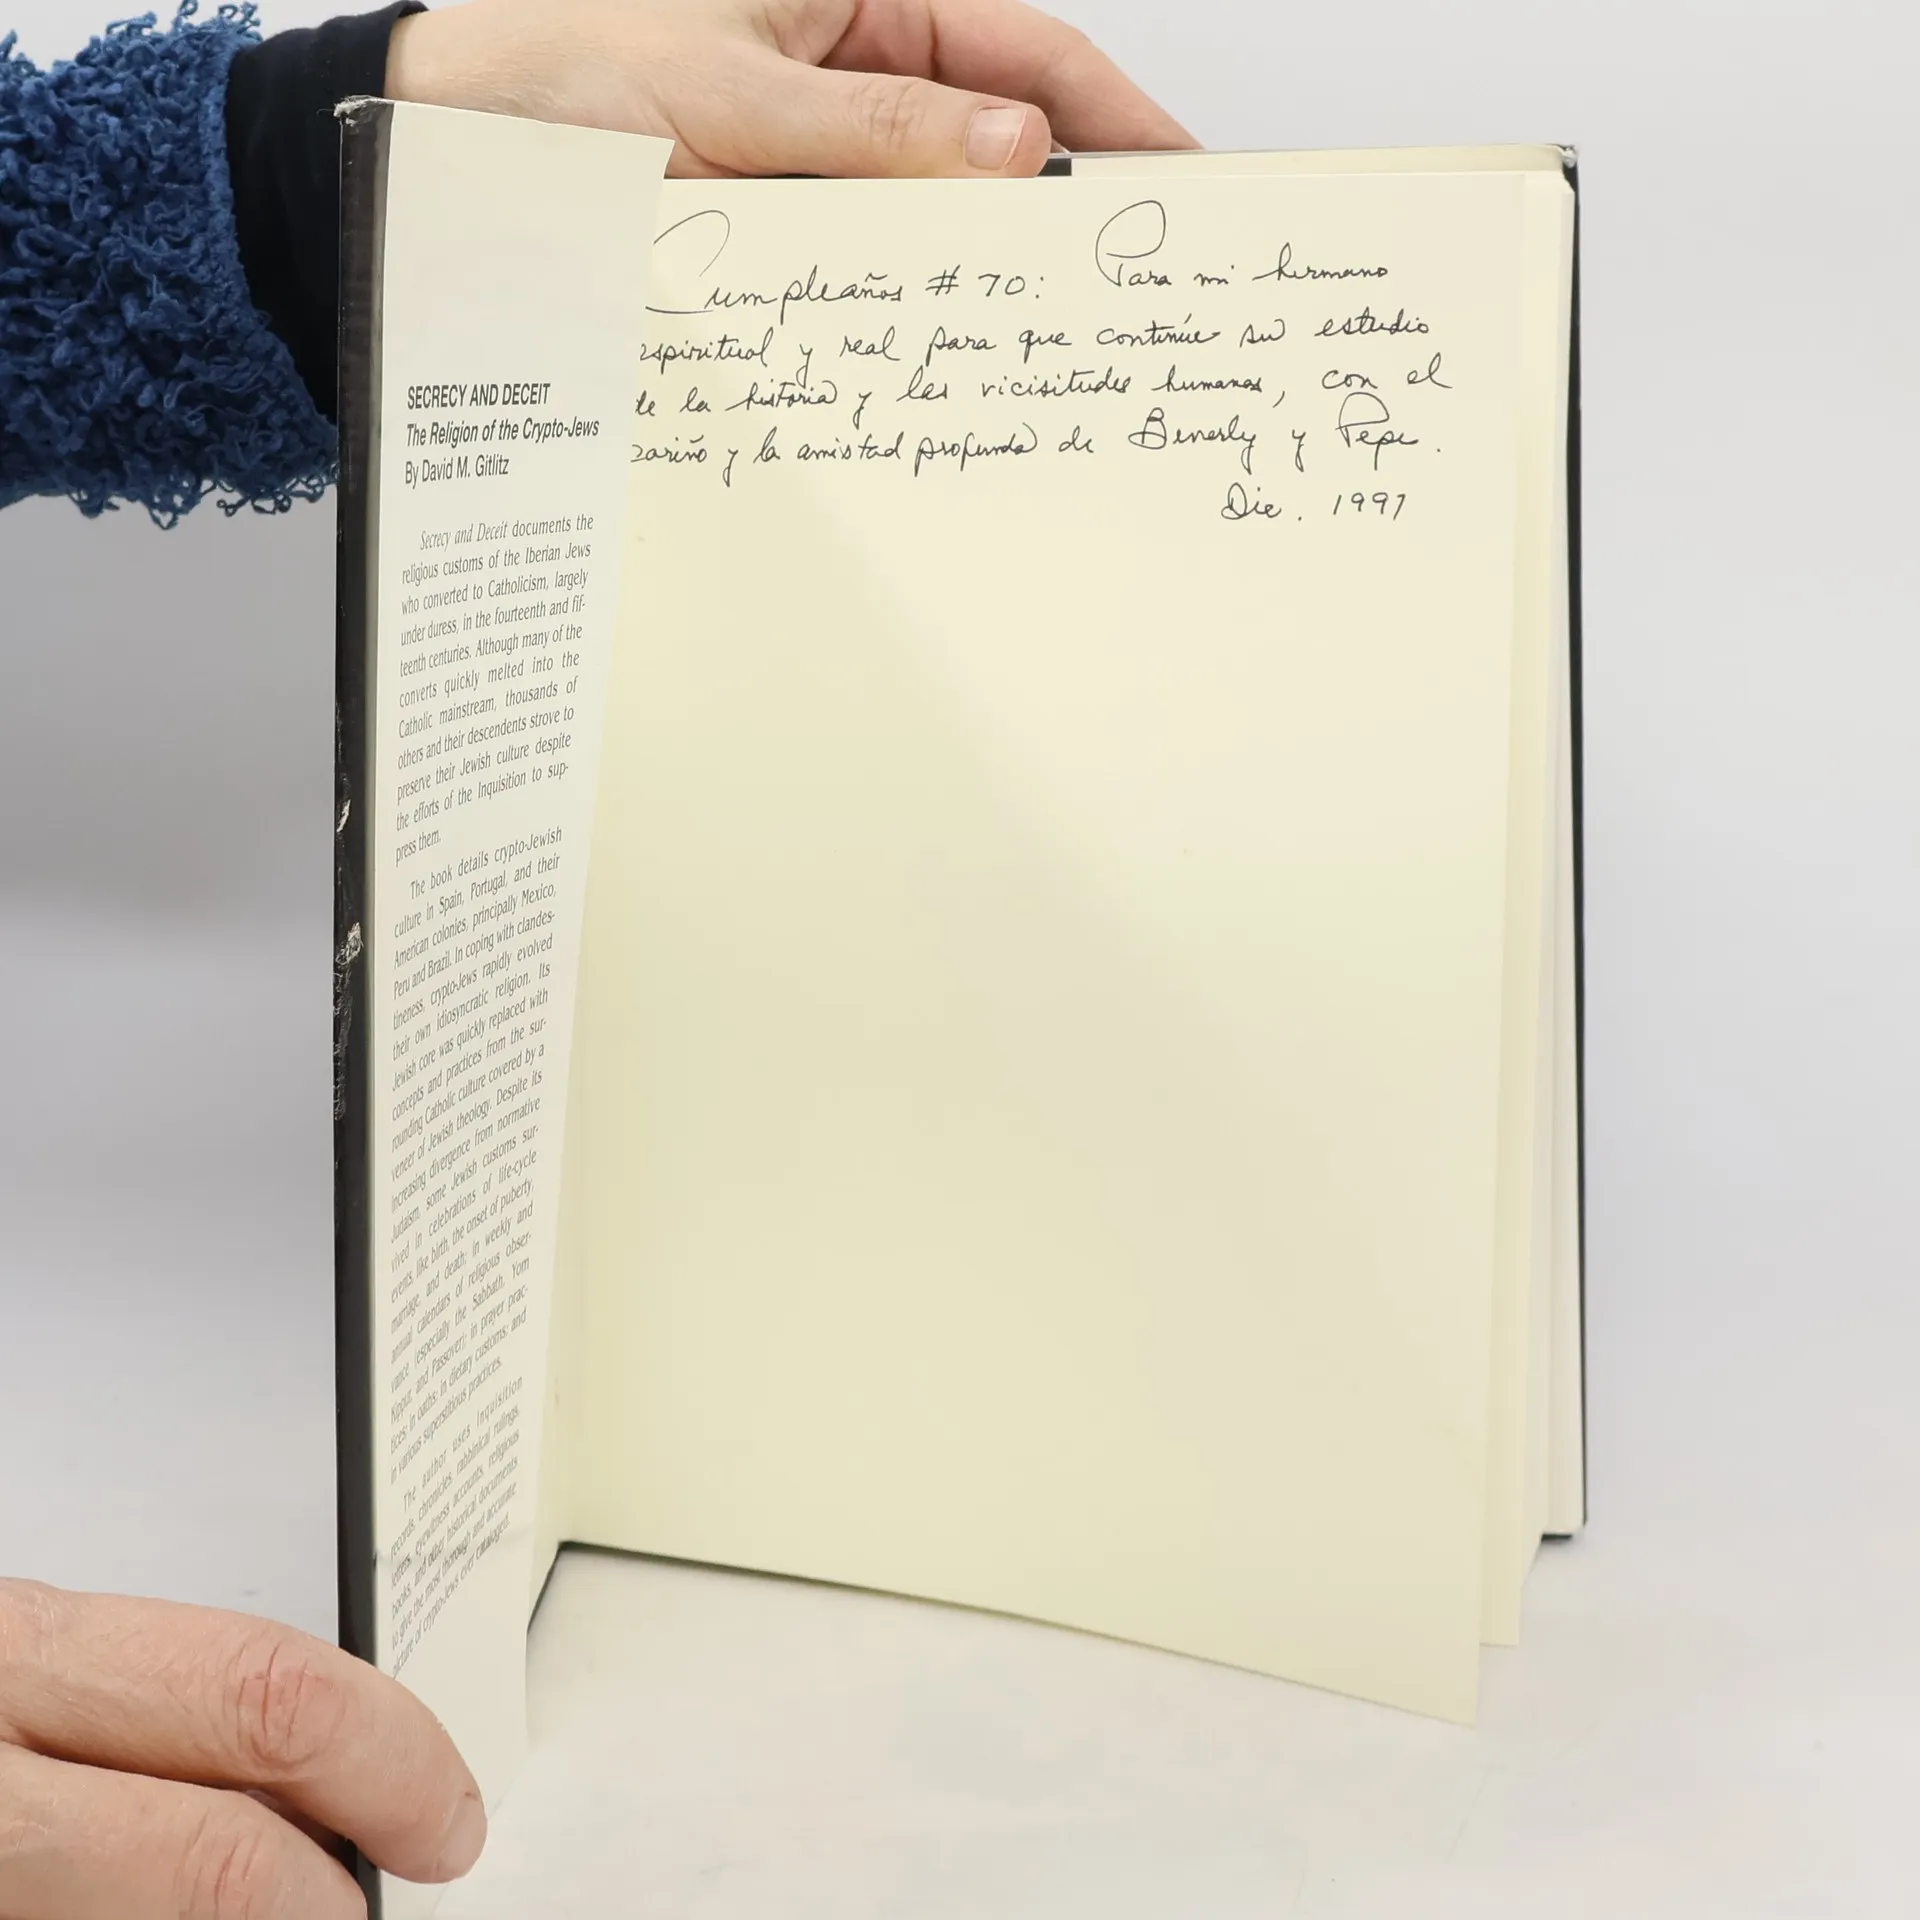 SECRECY AND DECEIT
The Religion of the Crypto-Jews
By David M. Gitlitz
Secrecy and Deceit documents the
religious customs of the Iberian Jews
who converted to Catholicism, largely
under duress, in the fourteenth and fif-
teenth centuries. Although many of the
converts quickly melted into the
Catholic mainstream, thousands of
others and their descendents strove to
preserve their Jewish culture despite
the efforts of the Inquisition to sup-
press them.
The book details crypto-Jewish
culture in Spain, Portugal, and their
American colonies, principally Mexico,
Peru and Brazil. In coping with clandes-
tineness, crypto-Jews rapidly evolved
their own idiosyncratic religion. Its
Jewish core was quickly replaced with
concepts and practices from the sur-
rounding Catholic culture covered by a
veneer of Jewish theology. Despite its
increasing divergence from normative
Judaism, some Jewish customs sur-
vived in celebrations of life-cycle
events, like birth, the onset of puberty,
marriage, and death; in weekly and
annual calendars of religious obser-
vance (especially the Sabbath, Yom
Kippur, and Passover); in prayer prac-
tices; in oaths; in dietary customs; and
in various superstitious practices.
The author uses Inquisition
records, chronicles, rabbinical rulings,
letters, eyewitness accounts, religious
books, and other historical documents
to give the most thorough and accurate
picture of crypto-Jews ever cataloged.
Cumpleaños # 70: Para mi hermano
espiritual y real para que continúe su estudio
de la historia y las vicisitudes humanas, con el
cariño y la amistad profunda de Beverly y Pepe.
Dic. 1997